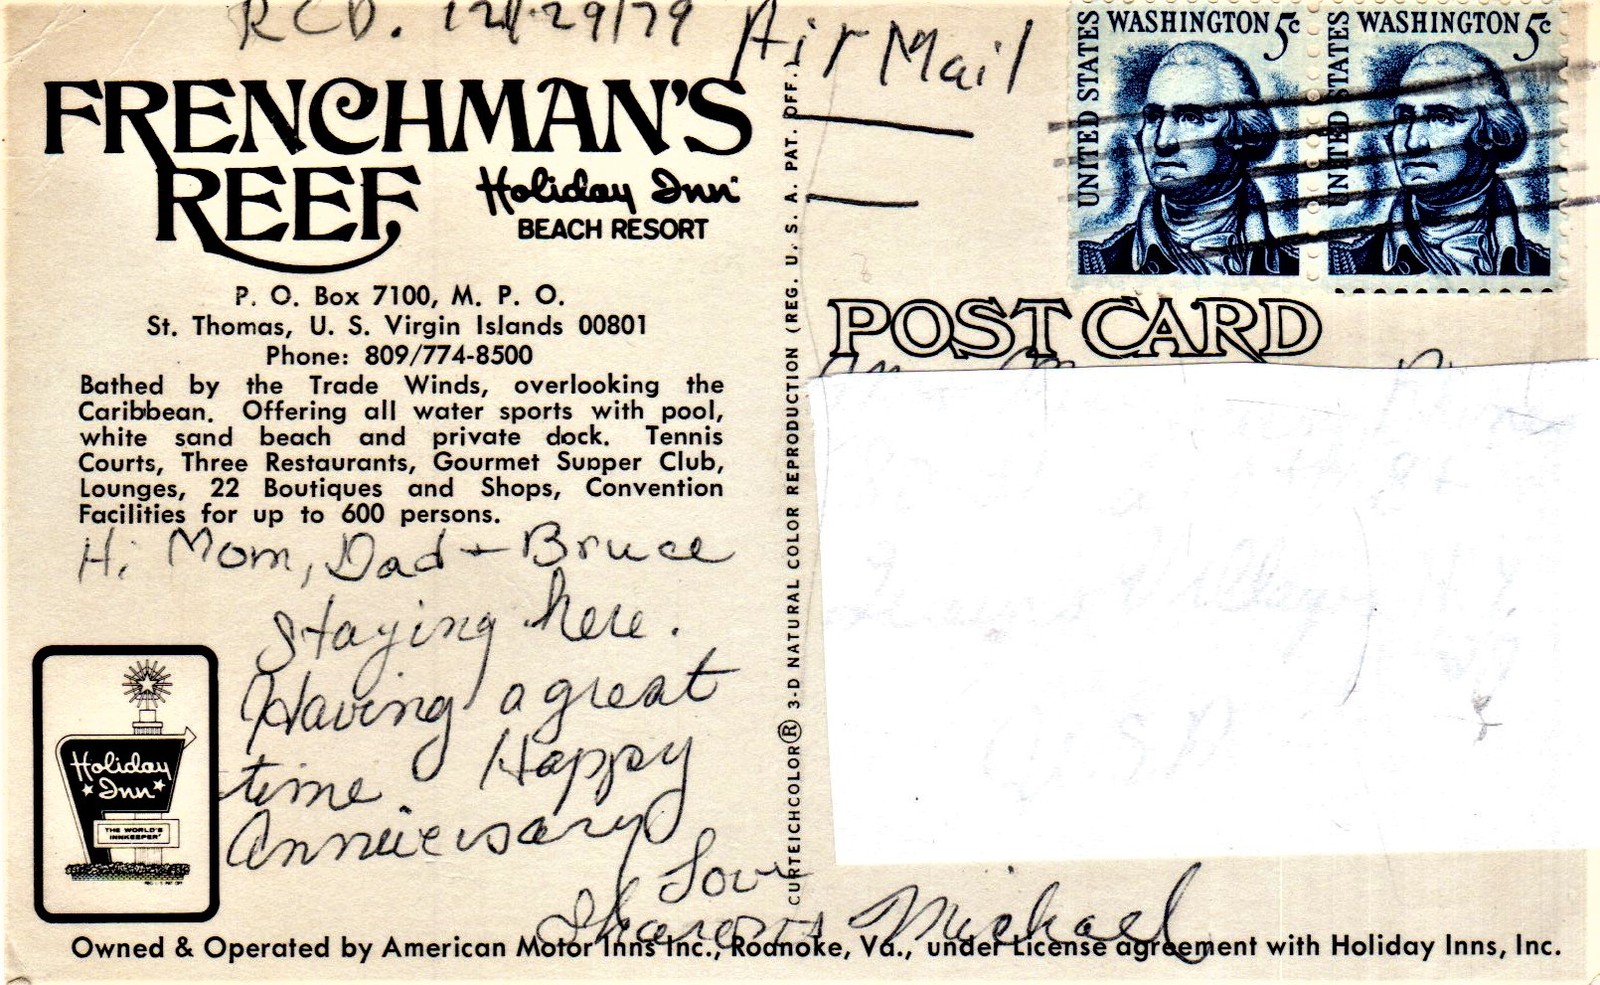 RCD. 12/29/79
Air Mail
UNITED STATES
WASHINGTON 5c
UNITED STATES
WASHINGTON 5c
FRENCHMAN'S
REEF
Holiday Inn
BEACH RESORT
P. O. Box 7100, M. P. O.
St. Thomas, U. S. Virgin Islands 00801
Phone: 809/774-8500
Bathed by the Trade Winds, overlooking the
Caribbean. Offering all water sports with pool,
white sand beach and private dock. Tennis
Courts, Three Restaurants, Gourmet Supper Club,
Lounges, 22 Boutiques and Shops, Convention
Facilities for up to 600 persons.
Hi Mom, Dad + Bruce
Staying here.
Having a great
time. Happy
Anniversary
Love
Sharon + Michael
Holiday
Inn
THE WORLD'S
INNKEEPER
CURTEICHCOLOR® 3-D NATURAL COLOR REPRODUCTION (REG. U. S. A. PAT. OFF.)
POST CARD
Queens Village, N.Y.
USA
Owned & Operated by American Motor Inns Inc., Roanoke, Va., under License agreement with Holiday Inns, Inc.